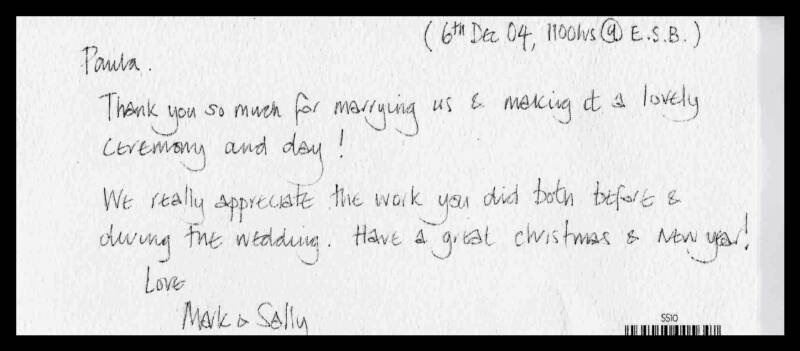 (6th Dec 04, 1100hrs @ E.S.B.)
Paula.
Thank you so much for marrying us & making it a lovely
ceremony and day!
We really appreciate the work you did both before &
during the wedding. Have a great christmas & New year!
Love
Mark & Sally
5510